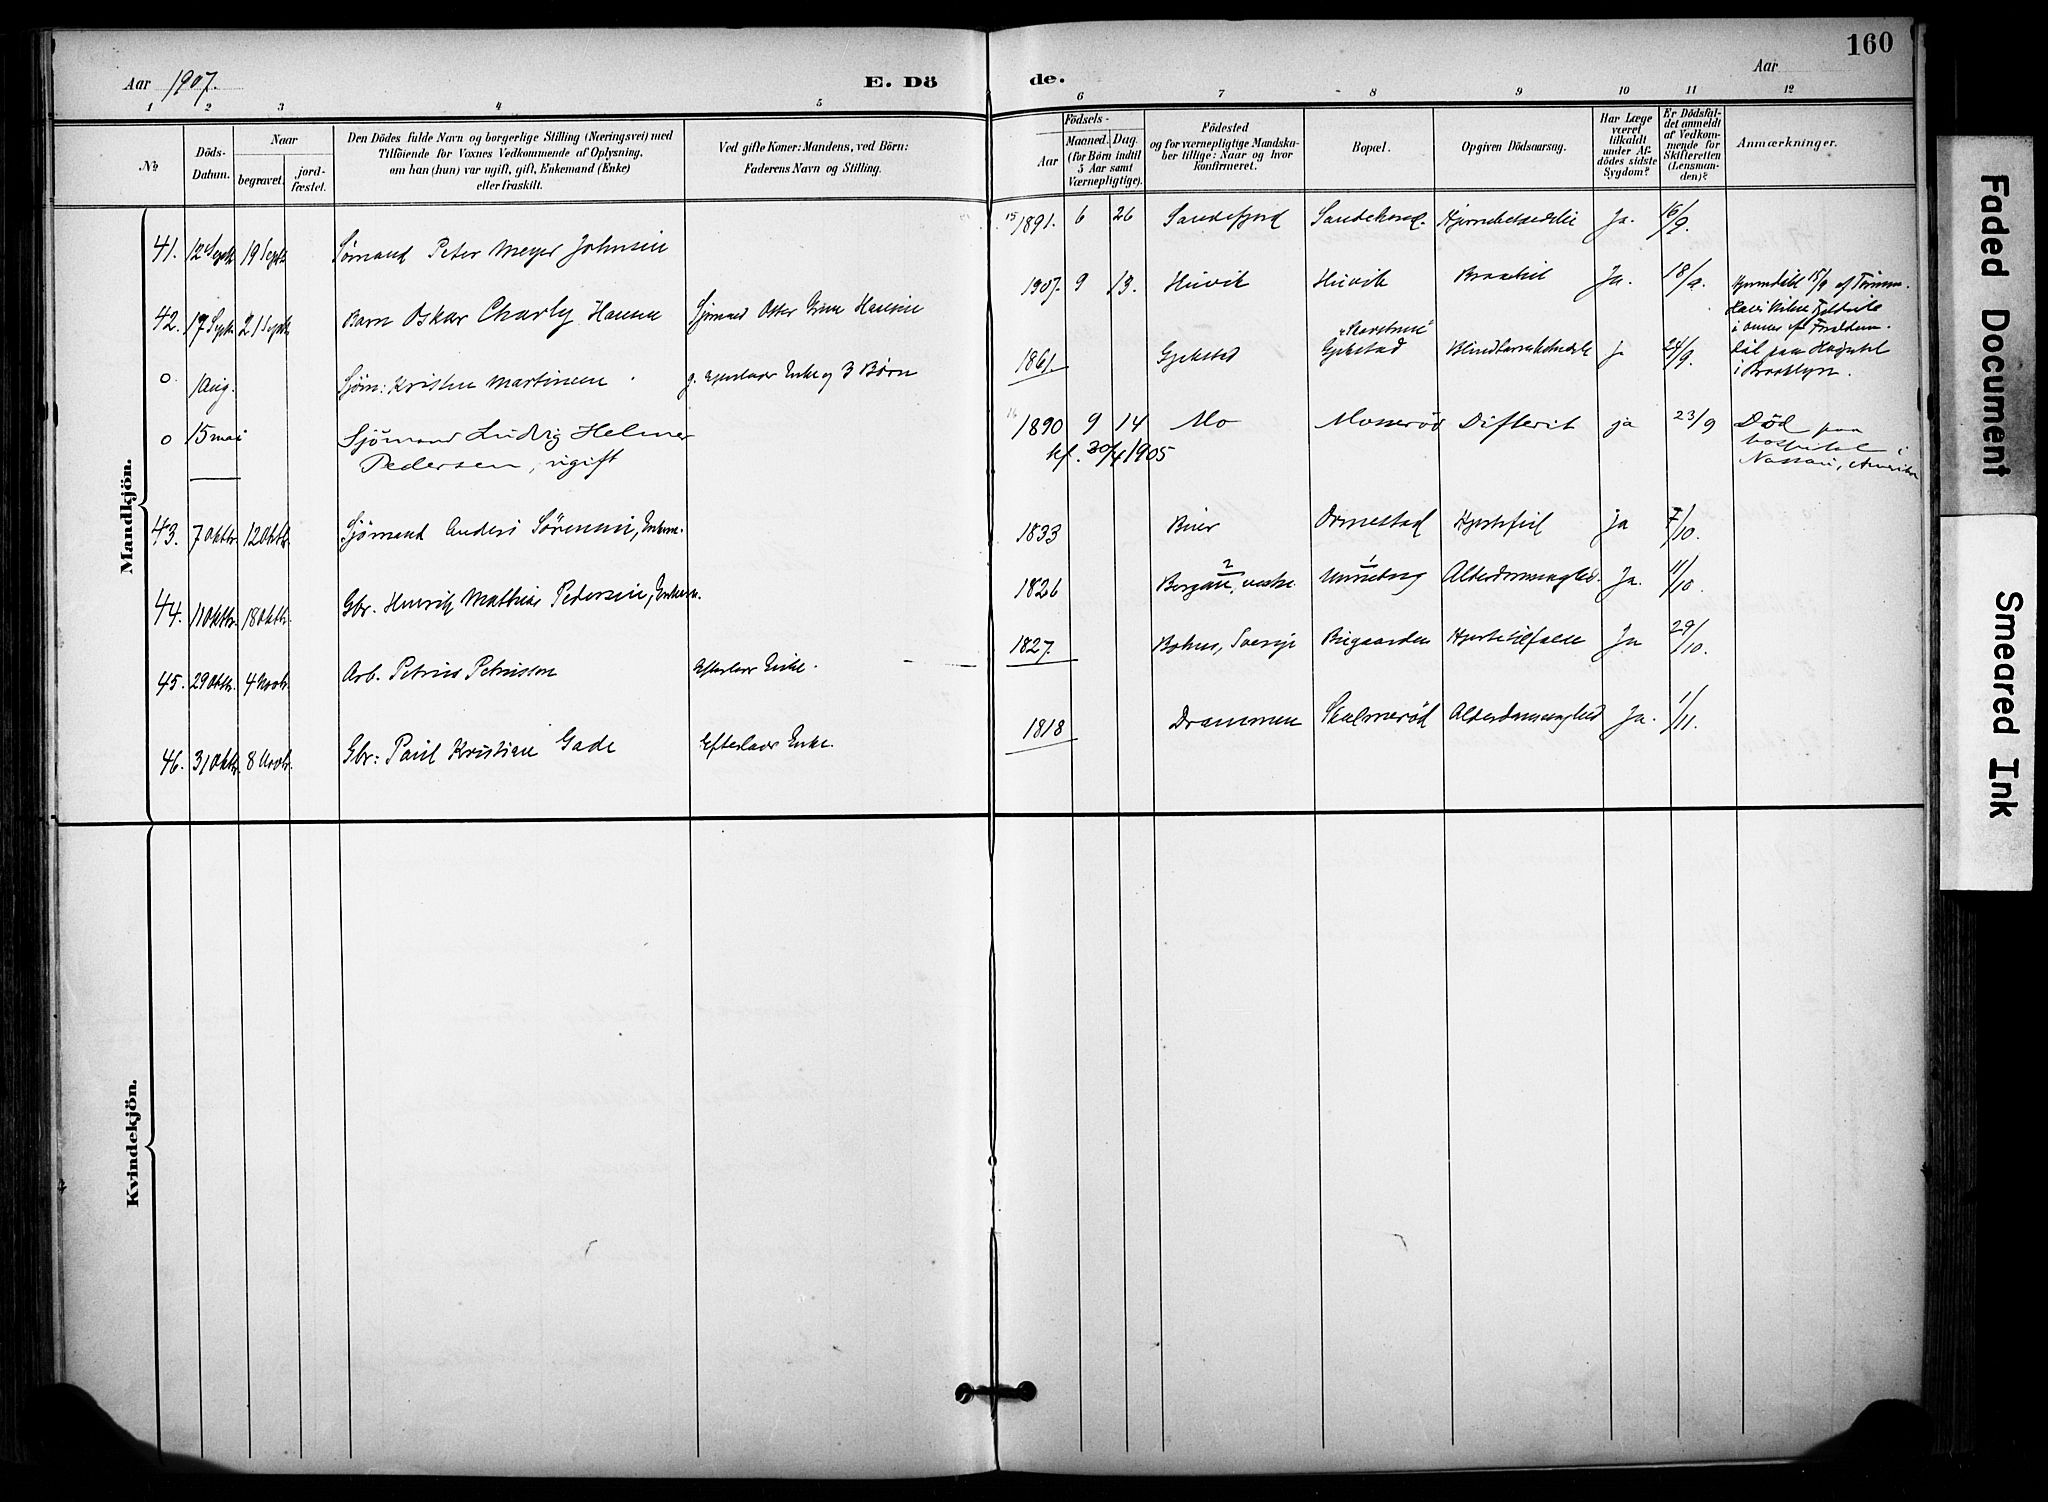 160
Aar 1907.
E. Dö de.
Aar
1 2 3 4 5 6 7 8 9 10 11 12
No
Döds-
Datum.
Naar
begravet.
jord-
fæstet.
Den Dödes fulde Navn og borgerlige Stilling (Næringsvei) med
Tilföiende for Voxnes Vedkommende af Oplysning,
om han (hun) var ugift, gift, Enkemand (Enke)
eller fraskilt.
Ved gifte Koner: Mandens, ved Börn:
Faderens Navn og Stilling.
Födsels-
Aar
Maaned. Dag.
(for Börn indtil
5 Aar samt
Værnepligtige).
Födested
og for værnepligtige Mandska-
ber tillige: Naar og hvor
konfirmeret.
Bopæl.
Opgiven Dödsaarsag.
Har Læge
været
tilkaldt
under Af-
dödes sidste
Sygdom?
Er Dödsfal-
det anmeldt
af Vedkom-
mende for
Skifteretten
(Lensman-
den)?
Anmærkninger.
Mandkjön.
41. 12 Septr 19 Septr Sømand Peter Meyer Johnsen 15 1891. 6 26 Sandefjord Ja. 16/9.
42. 17 Septr 21 Septr Barn Oskar Charly Hansen Sjømand Hansen 1907. 9 13. Huvik Huvik Ja. 18/9.
o 1 Aug. Sjøm: Kristen Martinsen g. Efterlader Enke og 3 Børn 1861. Gjekstad Gjekstad Ja 24/9. Død paa Hospital
i Brooklyn.
o 15 mai Sjømand Ludvig Helmer
Pedersen, ugift
16 1890 9 14 Mo Moserød Difterit ja 23/9 Død paa
hospital i
Nassau, Amerika
kf. 30/4 1905
43. 7 Oktbr. 12 Oktbr. Sjømand Anders Sørensen, Enkem. 1833 Ormestad Hjertefeil ja 7/10.
44. 11 Oktbr. 18 Oktbr. Gbr. Henrik Mathias Pedersen, Enkem. 1826 Bergan, vestre Unneberg Alderdomssvaghed. Ja. 11/10.
45. 29 Oktbr. 4 Novbr. Arb. Petrus Petrusson Efterlader Enke. 1827. Bohus, Sverige Bugaarden Hjertetilfælde Ja 29/10.
46. 31 Oktbr. 8 Novbr. Gbr: Paul Kristian Gade Efterlader Enke. 1818 Drammen Skolmerød Alderdomssvaghed Ja. 1/11.
Kvindekjön.
Faded Document
Smeared Ink